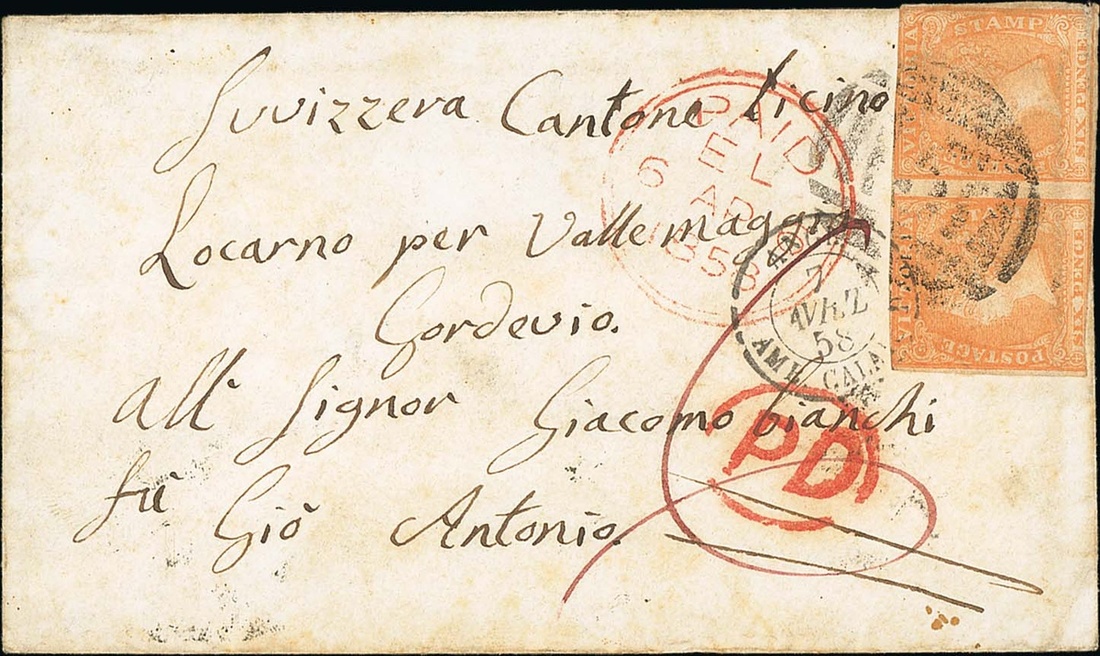 Svvizzera Cantone Ticino
Locarno per Valle maggia
Gordevio.
all' Signor Giacomo bianchi
fù Giò Antonio.
PAID
EL
6 AP
1858
7
AVR.
58
AMB. CALAI
PD
VICTORIA
POSTAGE
STAMP
SIX PENCE
VICTORIA
POSTAGE
STAMP
SIX PENCE